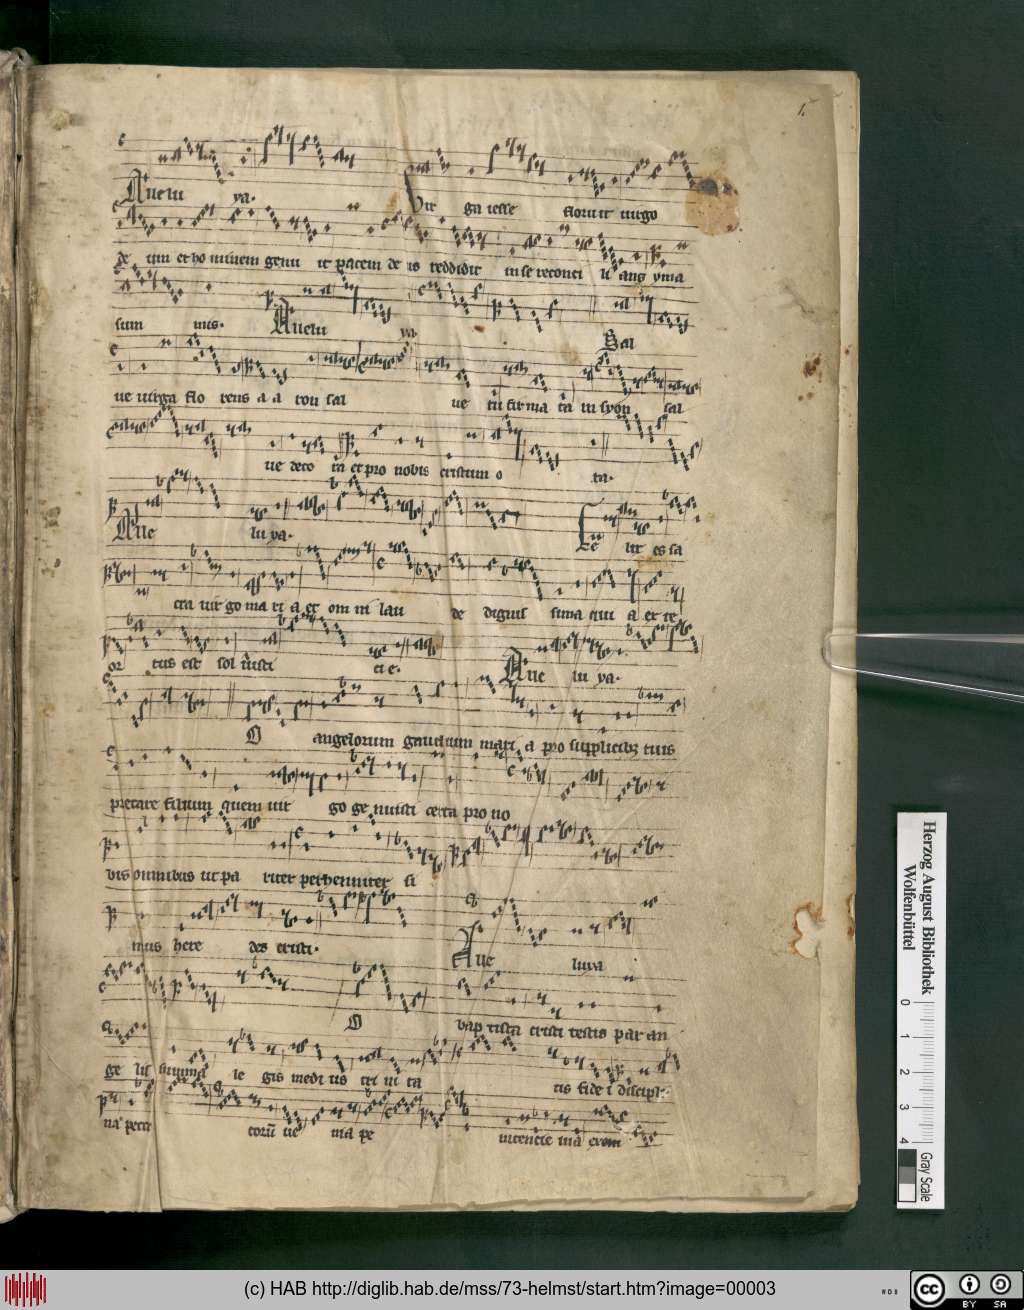 1.
Aue lu ya. Vir ga iesse floruit uirgo
de um et ho minem genu it pacem de us reddidit in se reconci li ans yma
sum mis. Aue lu ya. Sal
ue uirga flo rens a a ron sal ue tu firma ta in syon sal
ue deco ra et pro nobis cristum o ra.
Aue lu ya. Fe lix es sa
cra uir go ma ri a et om ni lau de dignis sima qui a ex te
or tus est sol iusti ci e. Aue lu ya.
O angelorum gaudium mari a pro supplicibz tuis
precare filium quem uir go ge nuisti certa pro no
bis omnibus ut pa riter perhenniter si
mus here des cristi. Aue luya
O bap tista cristi testis par an
ge lis summa le gis medi us tri ni ta tis fide i discipli
na pecca torū ue nia pe nitencie uia
Herzog August Bibliothek
Wolfenbüttel
0 1 2 3 4
Gray Scale
(c) HAB http://diglib.hab.de/mss/73-helmst/start.htm?image=00003
cc BY SA